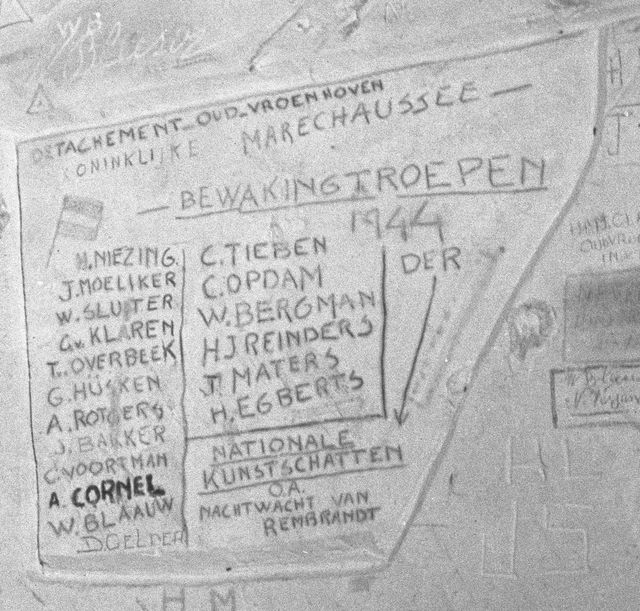 DETACHEMENT_OUD_VROENHOVEN
KONINKLIJKE MARECHAUSSEE —
— BEWAKINGTROEPEN
1944
DER
H.NIEZING.
J.MOELIKER
W.SLUITER
G.v.KLAREN
T.OVERBEEK
G.HÜSKEN
A.ROTGERS
J.BAKKER
C.VOORTMAN
A.CORNEL
W.BLAAUW
D.GELDER
C.TIEBEN
C.OPDAM
W.BERGMAN
HJREINDERS
J.MATERS
H.EGBERTS
NATIONALE
KUNSTSCHATTEN
O.A.
NACHTWACHT VAN
REMBRANDT
H M